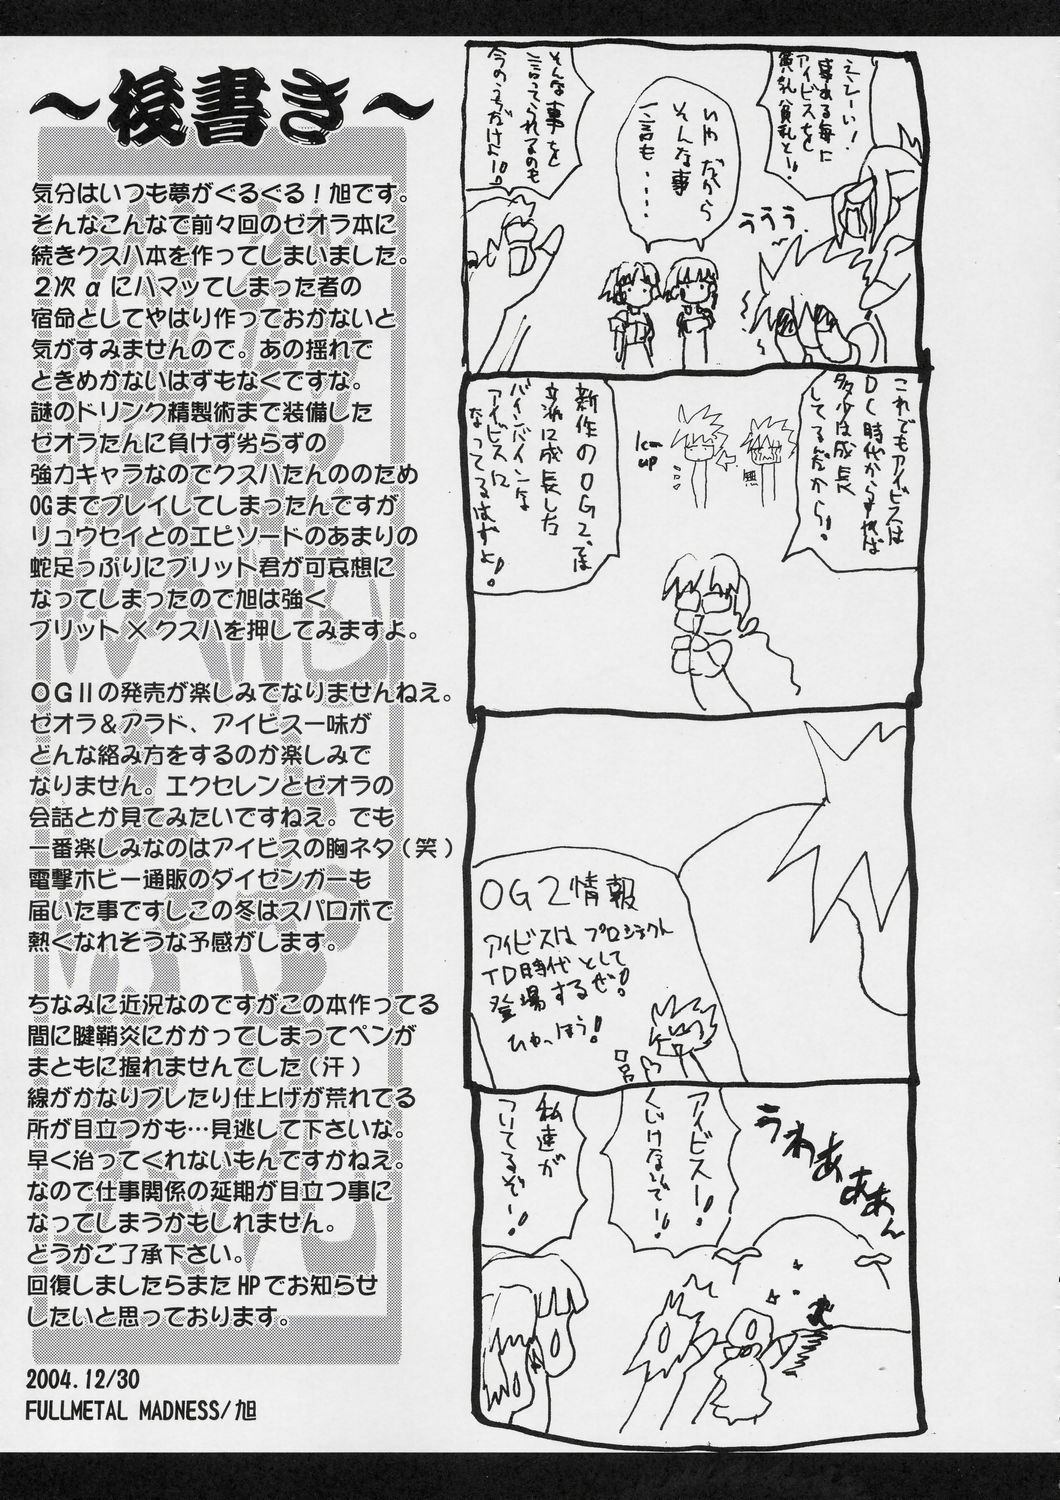 ～後書き～
気分はいつも夢がぐるぐる！旭です。
そんなこんなで前々回のゼオラ本に
続きクスハ本を作ってしまいました。
２次αにハマッてしまった者の
宿命としてやはり作っておかないと
気がすみませんので。あの揺れで
ときめかないはずもなくですな。
謎のドリンク精製術まで装備した
ゼオラたんに負けず劣らずの
強力キャラなのでクスハたんののため
OGまでプレイしてしまったんですが
リュウセイとのエピソードのあまりの
蛇足っぷりにブリット君が可哀想に
なってしまったので旭は強く
ブリット×クスハを押してみますよ。
ＯＧⅡの発売が楽しみでなりませんねえ。
ゼオラ＆アラド、アイビス一味が
どんな絡み方をするのか楽しみで
なりません。エクセレンとゼオラの
会話とか見てみたいですねえ。でも
一番楽しみなのはアイビスの胸ネタ（笑）
電撃ホビー通販のダイゼンガーも
届いた事ですしこの冬はスパロボで
熱くなれそうな予感がします。
ちなみに近況なのですがこの本作ってる
間に腱鞘炎にかかってしまってペンが
まともに握れませんでした（汗）
線がかなりブレたり仕上げが荒れてる
所が目立つかも…見逃して下さいな。
早く治ってくれないもんですかねえ。
なので仕事関係の延期が目立つ事に
なってしまうかもしれません。
どうかご了承下さい。
回復しましたらまたHPでお知らせ
したいと思っております。
2004.12/30
FULLMETAL MADNESS/旭
えーい！
事ある毎に
アイビスを
貧乳貧乳と!!
ううう
いや だから
そんな事
一言も・・・・
そんな事を
言ってられるのも
今のうちだけよ!!
これでもアイビスは
DC時代からすれば
多少は成長
してるんだから！
無
1cm
up
新作のOG2では
立派に成長した
バインバインな
アイビスに
なってるはずよ！
OG2情報
アイビスはプロジェクト
TD時代として
登場するぜ!
ひゃっほう!
うわあああん
アイビスー!
くじけないでー!
私達が
ついてるぞー!